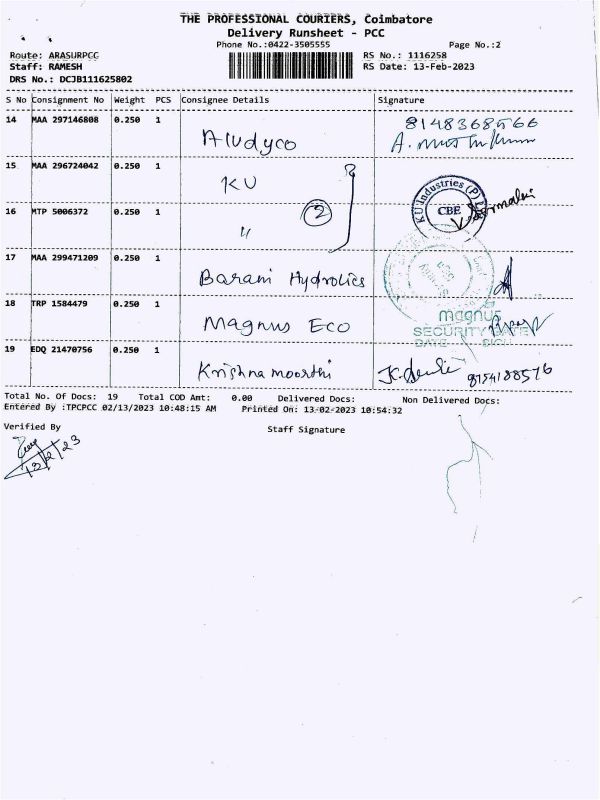 THE PROFESSIONAL COURIERS, Coimbatore
Delivery Runsheet - PCC
Phone No.:0422-3505555
Page No.:2
Route: ARASURPCC
RS No.: 1116258
Staff: RAMESH
RS Date: 13-Feb-2023
DRS No.: DCJB111625802
S No Consignment No Weight PCS Consignee Details Signature
14 MAA 297146808 0.250 1 Aludyco 8148368566
15 MAA 296724042 0.250 1 KU
KU Industries (P) CBE
16 MTP 5006372 0.250 1 〃 2
17 MAA 299471209 0.250 1 Barani Hydrolics
18 TRP 1584479 0.250 1 Magnus Eco
magnus
SECURITY GATE
DATE SIGN
19 EDQ 21470756 0.250 1 Krishna moorthi 8754188576
Total No. Of Docs: 19 Total COD Amt: 0.00 Delivered Docs: Non Delivered Docs:
Entered By :TPCPCC 02/13/2023 10:48:15 AM Printed On: 13-02-2023 10:54:32
Verified By Staff Signature
13/2/23